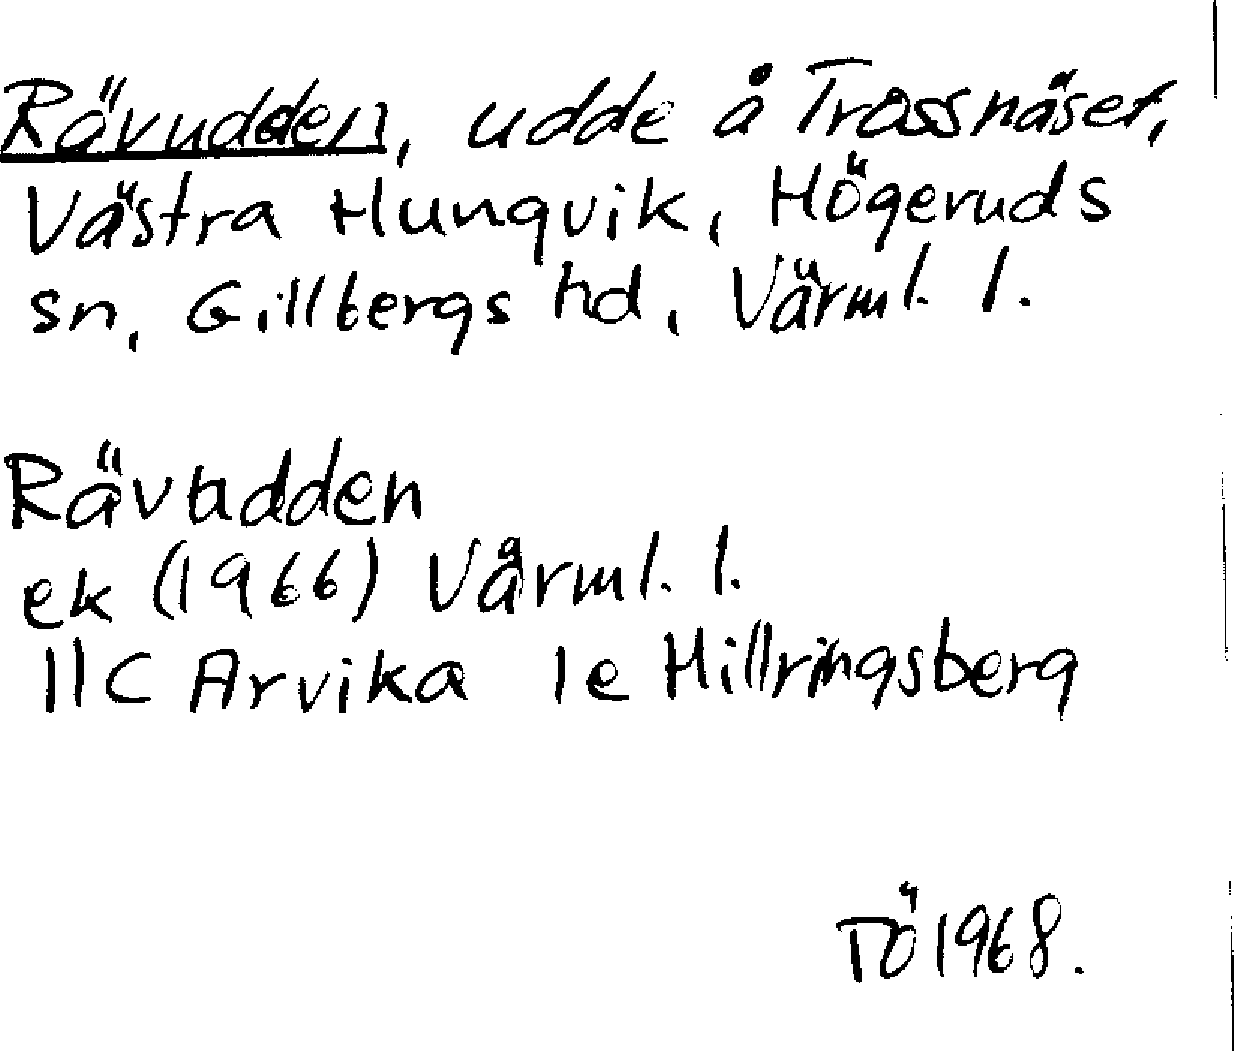 Rävudden, udde å Trossnäset,
Västra Hungvik, Högeruds
sn, Gillbergs hd, Värml. l.
Rävudden
ek (1966) Värml. l.
11C Arvika 1e Hillringsberg
TÖ 1968.